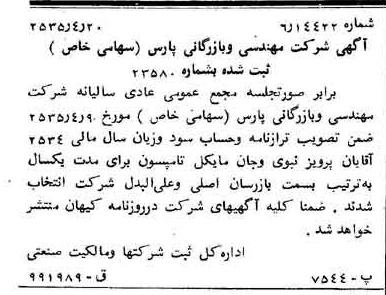 شماره ۶٫۱۴۴۲۲ ۲۵۳۵٫۴٫۲۰
آگهی شرکت مهندسی وبازرگانی پارس (سهامی خاص )
ثبت شده بشماره ۲۳۵۸۰
برابر صورتجلسه مجمع عمومی عادی سالیانه شرکت
مهندسی وبازرگانی پارس (سهامی خاص ) مورخ ۲۵۳۵٫۴٫۹
ضمن تصویب ترازنامه وحساب سود وزیان سال مالی ۲۵۳۴
آقایان پرویز نبوی وجان مایکل تامپسون برای مدت یکسال
به‌ترتیب بسمت بازرسان اصلی وعلی‌البدل شرکت انتخاب
شدند . ضمنا کلیه آگهیهای شرکت درروزنامه کیهان منتشر
خواهد شد .
اداره کل ثبت شرکتها ومالکیت صنعتی
پ-۷۵۴۴ ق-۹۹۱۹۸۹